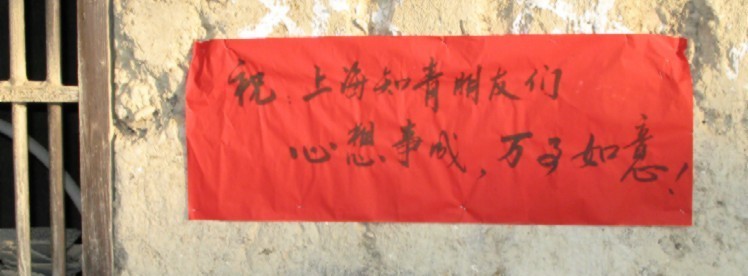 祝 上海知青朋友们
心想事成，万事如意！